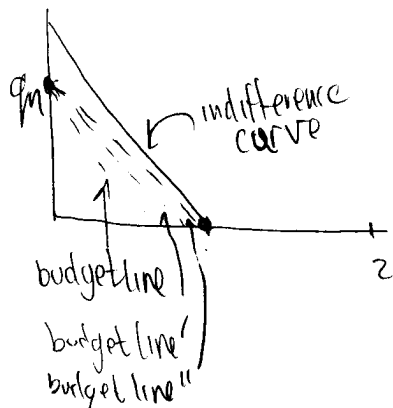 qm
indifference
curve
2
budgetline
budget line'
budget line"